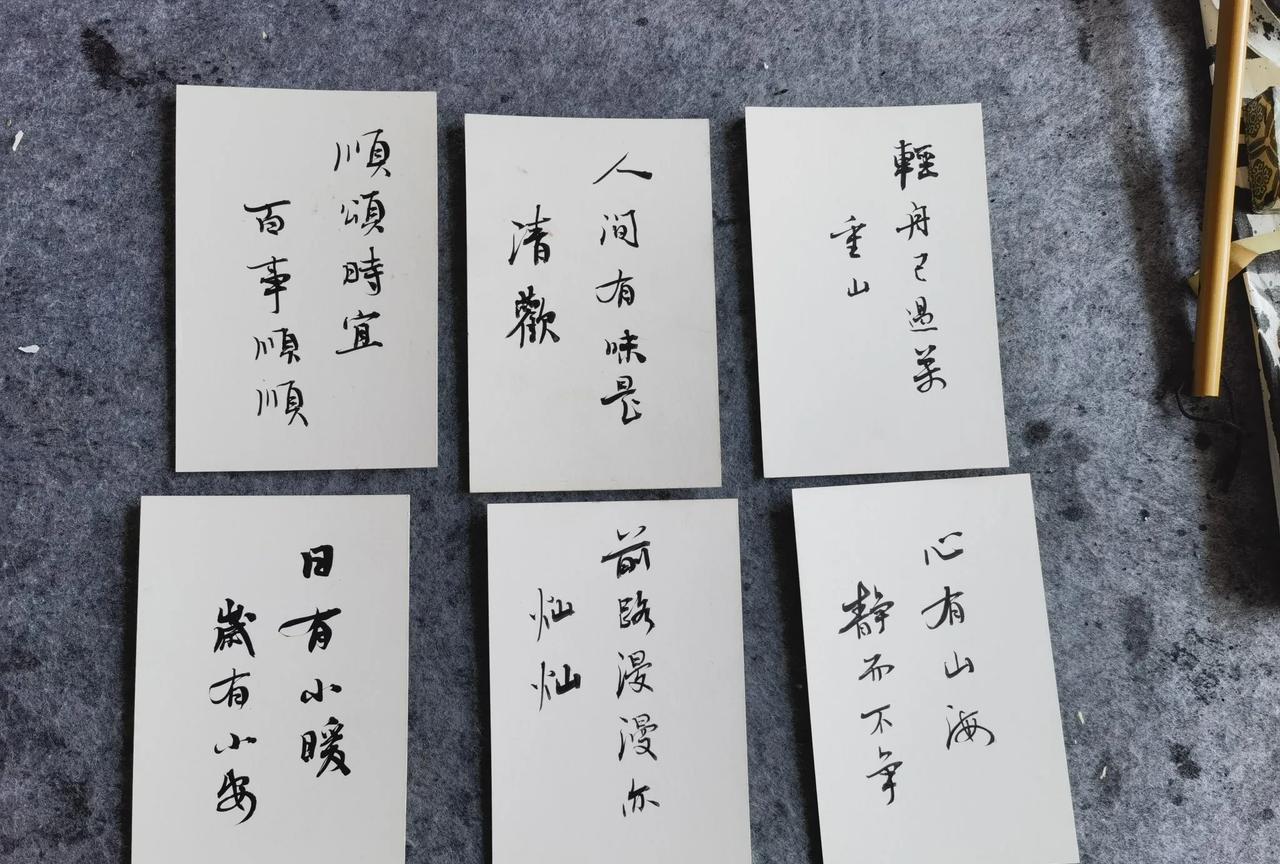 順頌時宜
百事順順
人间有味是
清歡
輕舟已過萬
重山
日有小暖
歲有小安
前路漫漫亦
灿灿
心有山海
静而不争